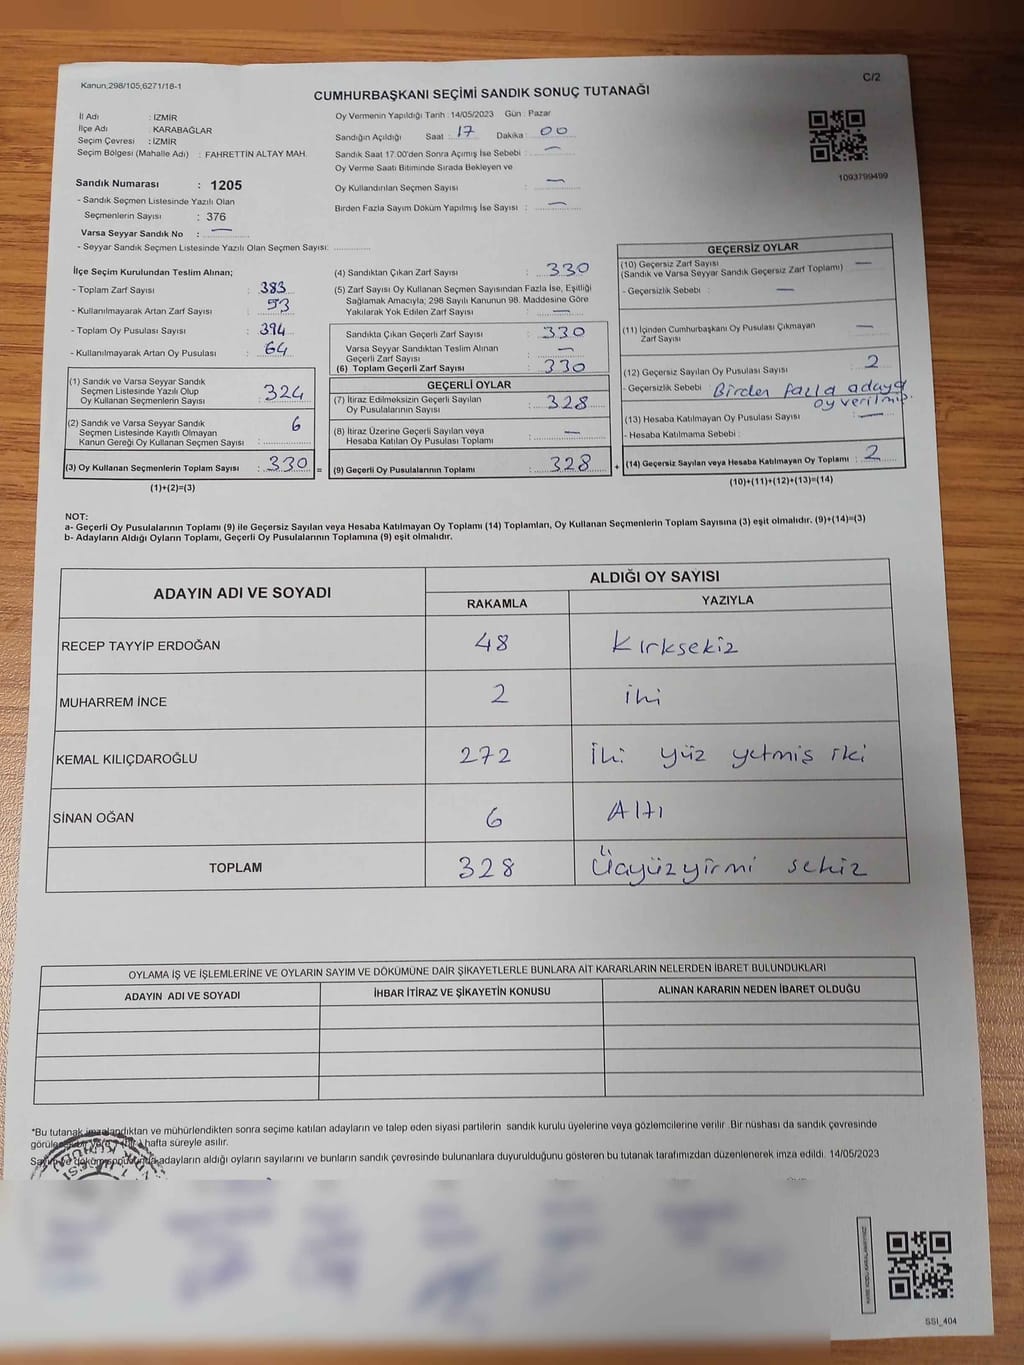 Kanun;298/105;6271/18-1
C/2
CUMHURBAŞKANI SEÇİMİ SANDIK SONUÇ TUTANAĞI
İl Adı : İZMİR
İlçe Adı : KARABAĞLAR
Seçim Çevresi : İZMİR
Seçim Bölgesi (Mahalle Adı) : FAHRETTİN ALTAY MAH.
Sandık Numarası : 1205
- Sandık Seçmen Listesinde Yazılı Olan
Seçmenlerin Sayısı : 376
Varsa Seyyar Sandık No : —
- Seyyar Sandık Seçmen Listesinde Yazılı Olan Seçmen Sayısı:
Oy Vermenin Yapıldığı Tarih : 14/05/2023 Gün : Pazar
Sandığın Açıldığı Saat : 17 Dakika : 00
Sandık Saat 17:00'den Sonra Açımış İse Sebebi : —
Oy Verme Saati Bitiminde Sırada Bekleyen ve
Oy Kullandırılan Seçmen Sayısı : —
Birden Fazla Sayım Döküm Yapılmış İse Sayısı : —
1093799499
İlçe Seçim Kurulundan Teslim Alınan;
- Toplam Zarf Sayısı : 383
- Kullanılmayarak Artan Zarf Sayısı : 53
- Toplam Oy Pusulası Sayısı : 394
- Kullanılmayarak Artan Oy Pusulası : 64
(1) Sandık ve Varsa Seyyar Sandık
Seçmen Listesinde Yazılı Olup
Oy Kullanan Seçmenlerin Sayısı : 324
(2) Sandık ve Varsa Seyyar Sandık
Seçmen Listesinde Kayıtlı Olmayan
Kanun Gereği Oy Kullanan Seçmen Sayısı : 6
(3) Oy Kullanan Seçmenlerin Toplam Sayısı : 330 =
(1)+(2)=(3)
(4) Sandıktan Çıkan Zarf Sayısı : 330
(5) Zarf Sayısı Oy Kullanan Seçmen Sayısından Fazla İse, Eşitliği
Sağlamak Amacıyla; 298 Sayılı Kanunun 98. Maddesine Göre
Yakılarak Yok Edilen Zarf Sayısı : —
Sandıkta Çıkan Geçerli Zarf Sayısı : 330
Varsa Seyyar Sandıktan Teslim Alınan
Geçerli Zarf Sayısı : —
(6) Toplam Geçerli Zarf Sayısı : 330
GEÇERLİ OYLAR
(7) İtiraz Edilmeksizin Geçerli Sayılan
Oy Pusulalarının Sayısı : 328
(8) İtiraz Üzerine Geçerli Sayılan veya
Hesaba Katılan Oy Pusulası Toplamı : —
(9) Geçerli Oy Pusulalarının Toplamı : 328 +
GEÇERSİZ OYLAR
(10) Geçersiz Zarf Sayısı
(Sandık ve Varsa Seyyar Sandık Geçersiz Zarf Toplamı) —
- Geçersizlik Sebebi : —
(11) İçinden Cumhurbaşkanı Oy Pusulası Çıkmayan
Zarf Sayısı —
(12) Geçersiz Sayılan Oy Pusulası Sayısı : 2
- Geçersizlik Sebebi : Birden fazla adaya
oy verilmiş.
(13) Hesaba Katılmayan Oy Pusulası Sayısı : —
- Hesaba Katılmama Sebebi :
(14) Geçersiz Sayılan veya Hesaba Katılmayan Oy Toplamı : 2
(10)+(11)+(12)+(13)=(14)
NOT:
a- Geçerli Oy Pusulalarının Toplamı (9) ile Geçersiz Sayılan veya Hesaba Katılmayan Oy Toplamı (14) Toplamları, Oy Kullanan Seçmenlerin Toplam Sayısına (3) eşit olmalıdır. (9)+(14)=(3)
b- Adayların Aldığı Oyların Toplamı, Geçerli Oy Pusulalarının Toplamına (9) eşit olmalıdır.
ADAYIN ADI VE SOYADI ALDIĞI OY SAYISI
RAKAMLA YAZIYLA
RECEP TAYYİP ERDOĞAN 48 Kırksekiz
MUHARREM İNCE 2 iki
KEMAL KILIÇDAROĞLU 272 İki yüz yetmiş iki
SİNAN OĞAN 6 Altı
TOPLAM 328 Üçyüzyirmi sekiz
OYLAMA İŞ VE İŞLEMLERİNE VE OYLARIN SAYIM VE DÖKÜMÜNE DAİR ŞİKAYETLERLE BUNLARA AİT KARARLARIN NELERDEN İBARET BULUNDUKLARI
ADAYIN ADI VE SOYADI İHBAR İTİRAZ VE ŞİKAYETİN KONUSU ALINAN KARARIN NEDEN İBARET OLDUĞU
*Bu tutanak imzalandıktan ve mühürlendikten sonra seçime katılan adayların ve talep eden siyasi partilerin sandık kurulu üyelerine veya gözlemcilerine verilir. Bir nüshası da sandık çevresinde
hafta süreyle asılır.
adayların aldığı oyların sayılarını ve bunların sandık çevresinde bulunanlara duyurulduğunu gösteren bu tutanak tarafımızdan düzenlenerek imza edildi. 14/05/2023
SSI_404